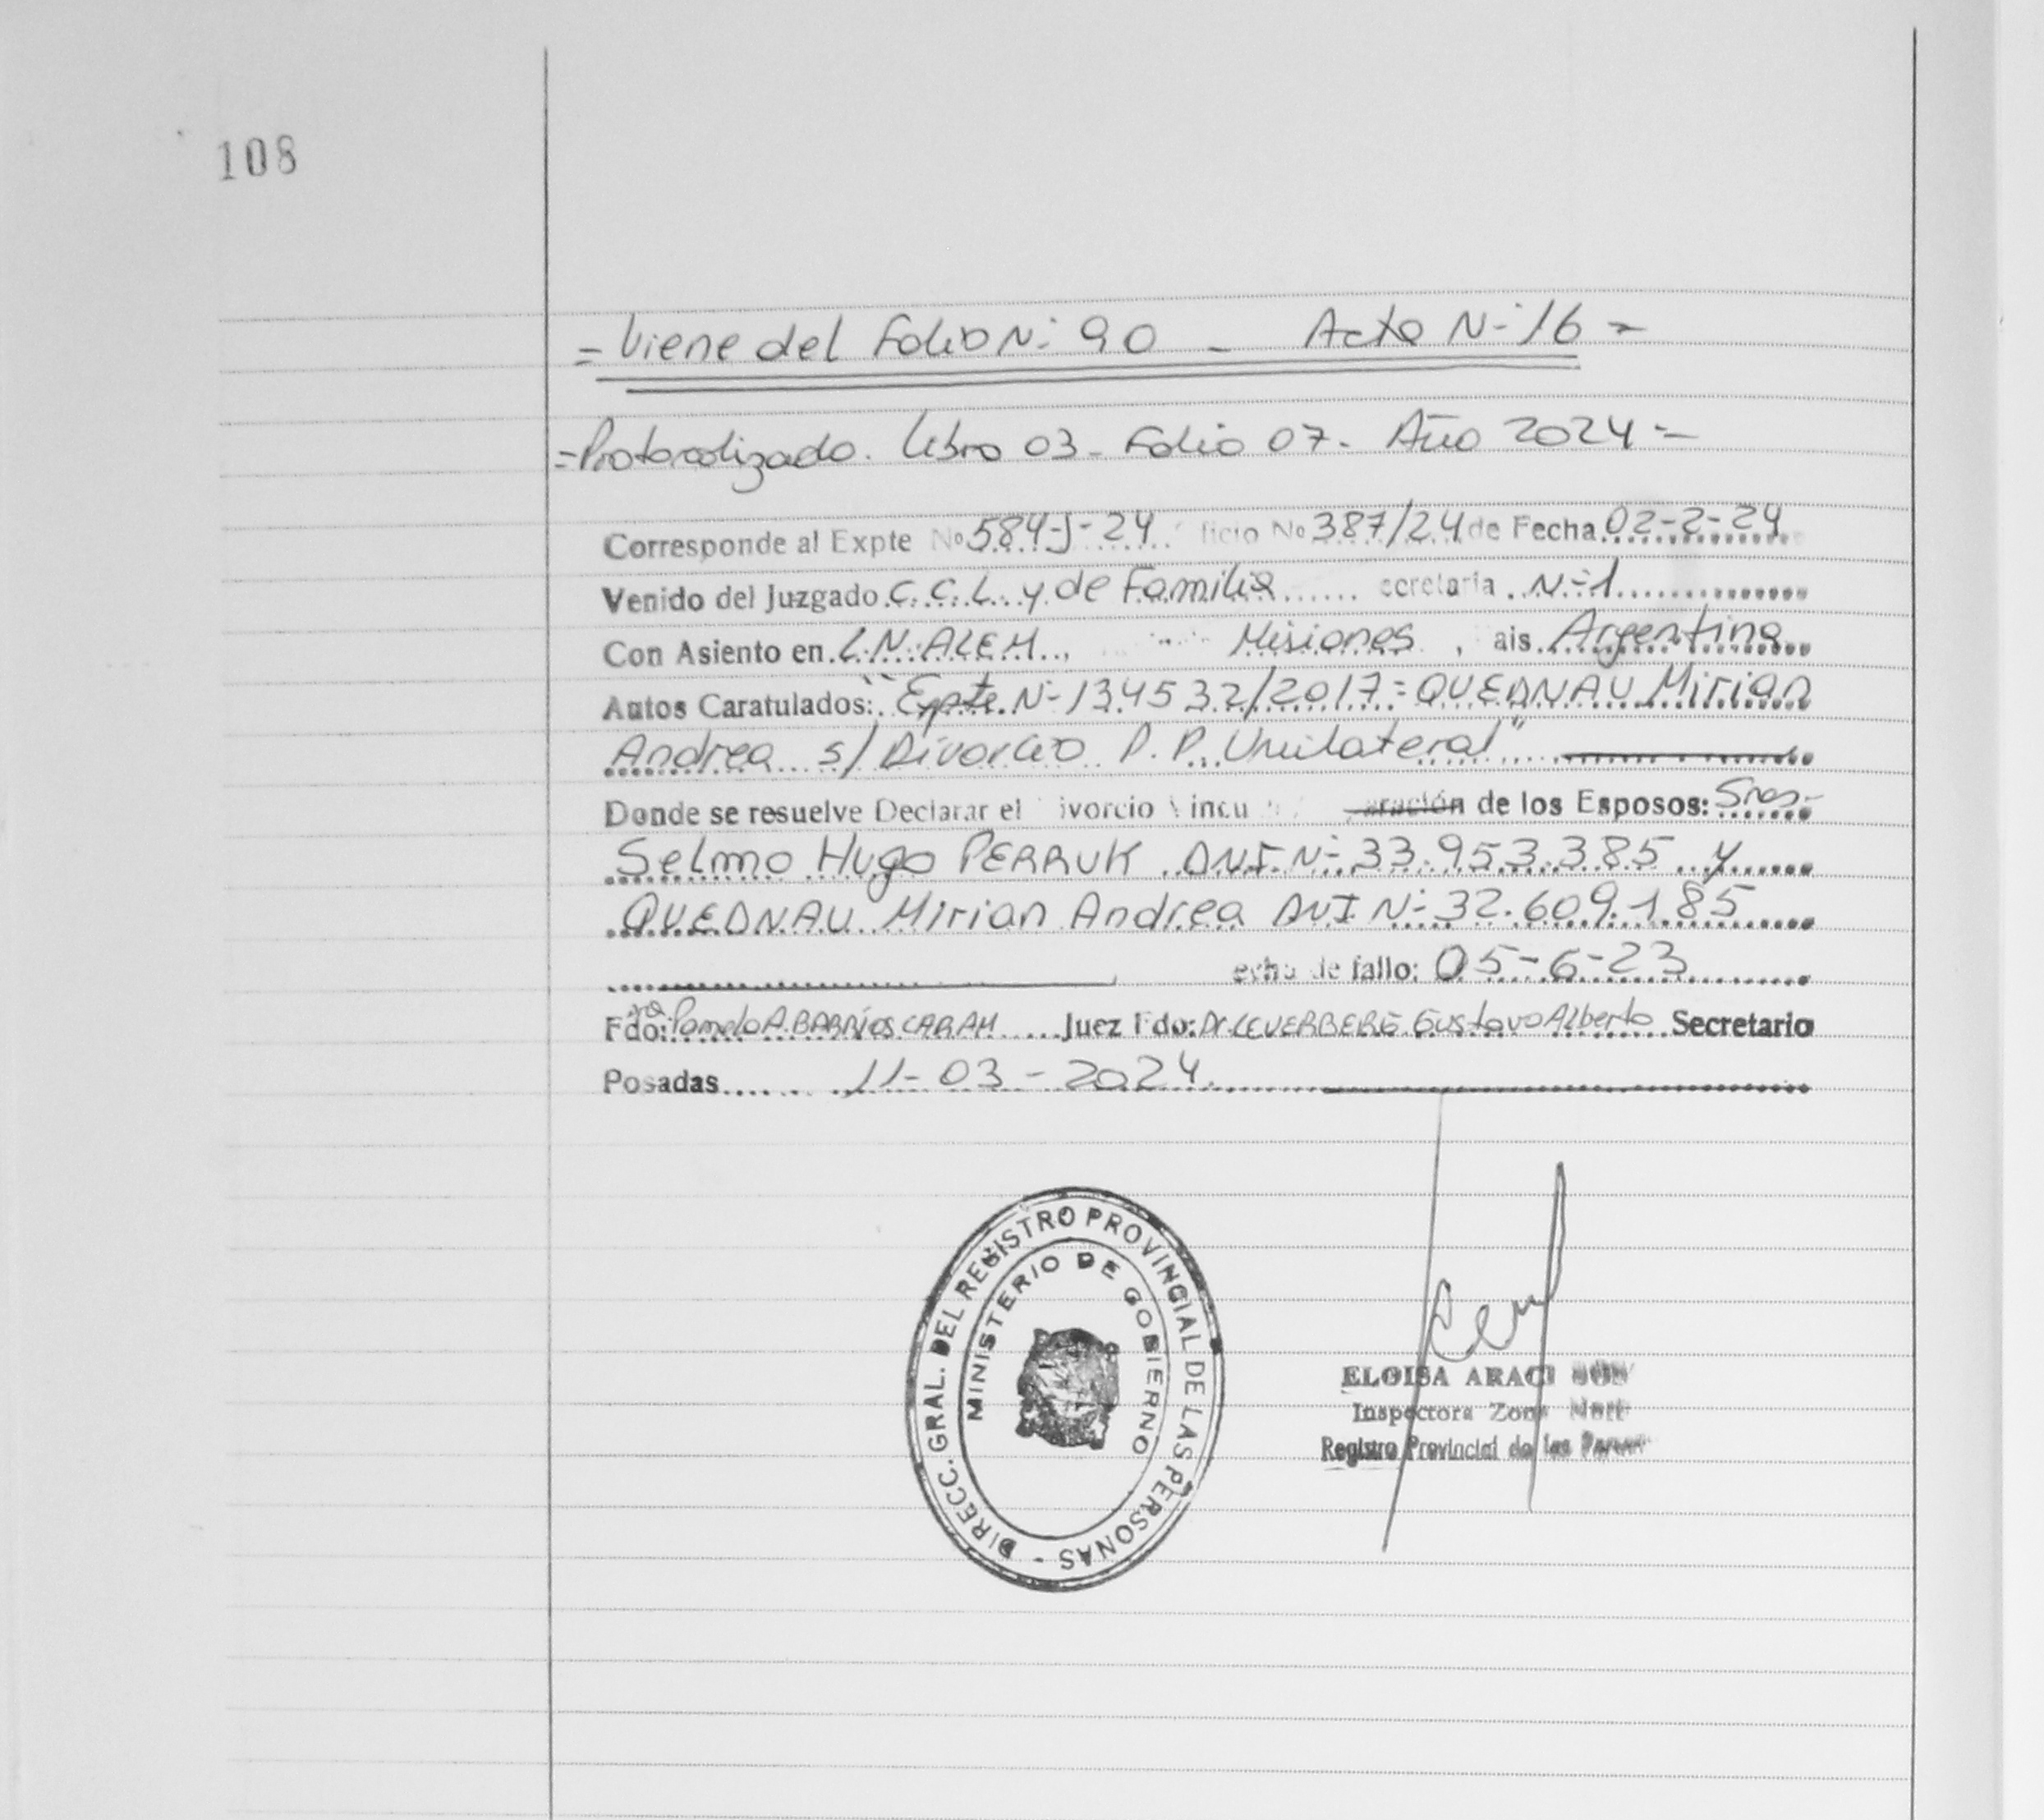 108
= Viene del Folio N: 90 - Acta N-16 =
= Protocolizado. Libro 03 - Folio 07 - Año 2024 =
Corresponde al Expte Nº 584-J-24 ficio Nº 387/24 de Fecha 02-2-24
Venido del Juzgado C.C.L. y de Familia ecretaria N-1
Con Asiento en L.N. ALEM, Misiones, ais Argentina
Autos Caratulados: "Expte. N-134532/2017= QUEDNAU Mirian
Andrea s/ Divorcio P.P. Unilateral"
Donde se resuelve Declarar el ivorcio Vincu aración de los Esposos: Sres.
Selmo Hugo PERRUK DNI N- 33.953.385 y
QUEDNAU Mirian Andrea DNI N- 32.609.185
echa de fallo: 05-6-23
Fdo: Dra Pamela A. BARRIOS CARAM Juez Fdo: Dr. LEVERBERG Gustavo Alberto Secretario
Posadas 11-03-2024
DIRECC. GRAL. DEL REGISTRO PROVINCIAL DE LAS PERSONAS -
MINISTERIO DE GOBIERNO
ELOISA ARACI
Inspectora Zona Nort
Registro Provincial de las